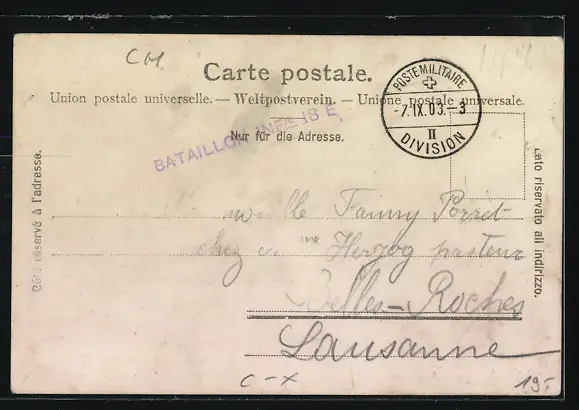 CH
Carte postale.
Union postale universelle. — Weltpostverein. — Unione postale universale.
Nur für die Adresse.
BATAILLON INF. 18 E
POSTE MILITAIRE
-7.IX.03.-3
II
DIVISION
Côté réservé à l'adresse.
Lato riservato all indirizzo.
Fanny Porret
chez Mme Herzog pasteur
Belles-Roches
Lausanne
C-X
19.-